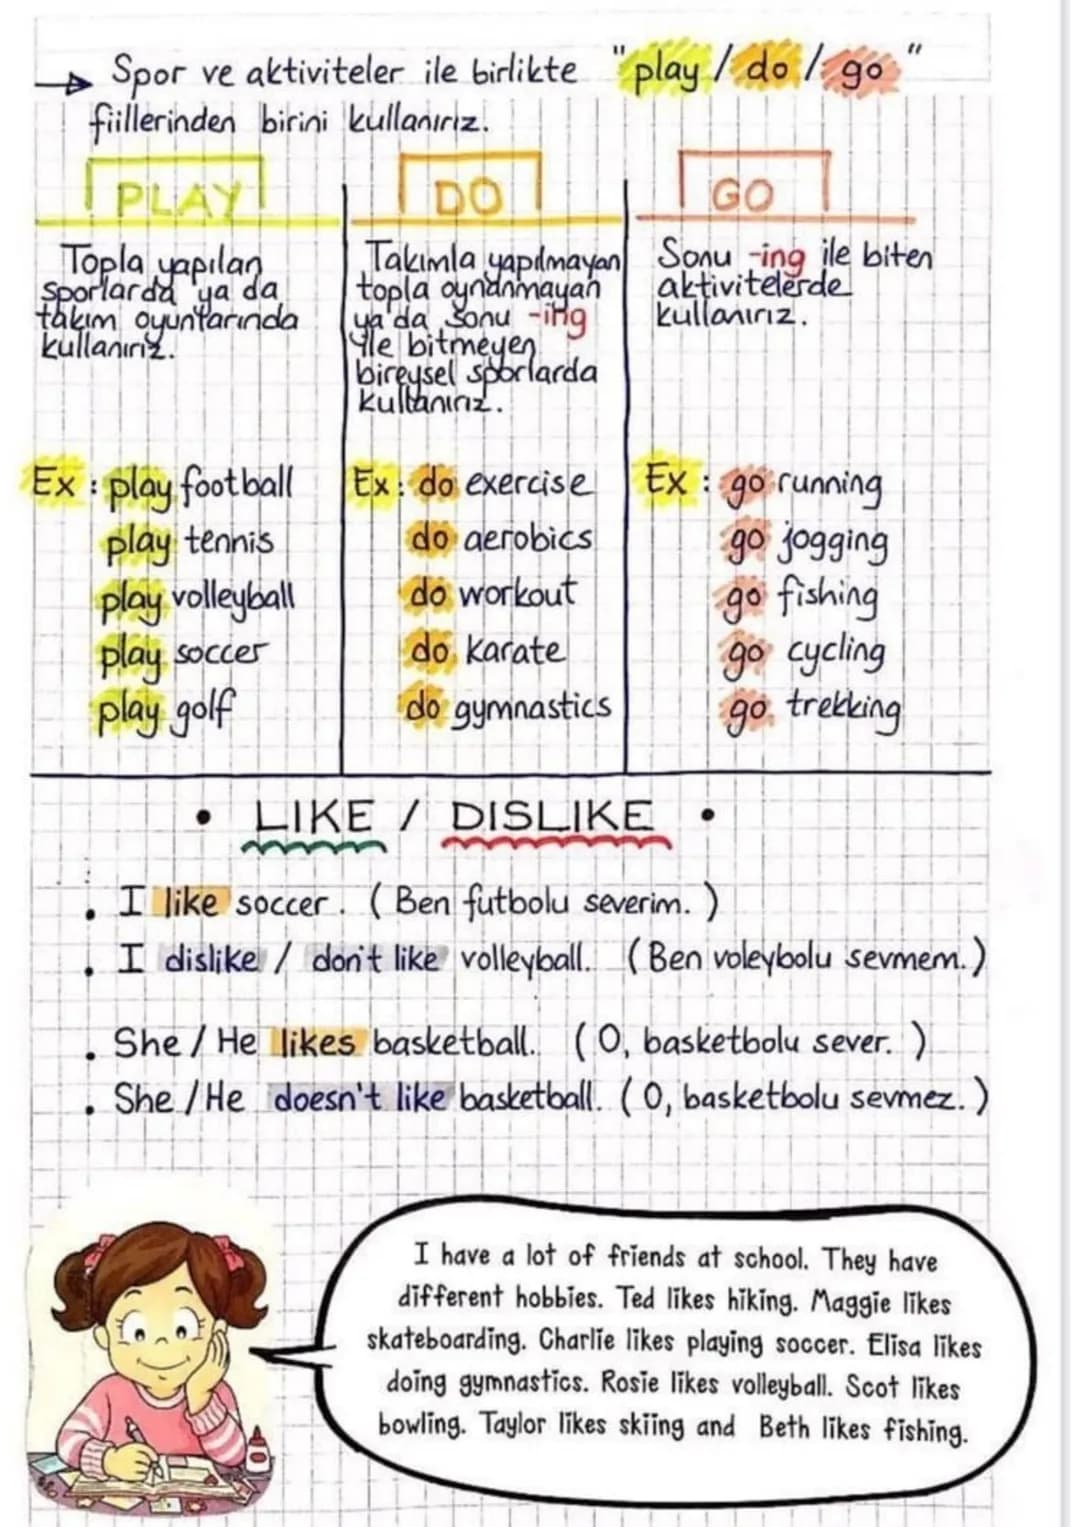 Spor ve aktiviteler ile birlikte "play / do / go"
fiillerinden birini kullanırız.
PLAY
Topla yapılan
sporlarda ya da
takım oyunlarında
kullanırız.
Ex: play football
play tennis
play volleyball
play soccer
play golf
DO
Takımla yapılmayan
topla oynanmayan
ya da sonu -ing
ile bitmeyen
bireysel sporlarda
kullanırız.
Ex: do exercise
do aerobics
do workout
do karate
do gymnastics
GO
Sonu -ing ile biten
aktivitelerde
kullanırız.
Ex: go running
go jogging
go fishing
go cycling
go trekking
• LIKE / DISLIKE •
• I like soccer. ( Ben futbolu severim. )
• I dislike / don't like volleyball. (Ben voleybolu sevmem.)
• She / He likes basketball. ( O, basketbolu sever. )
• She / He doesn't like basketball. ( O, basketbolu sevmez. )
I have a lot of friends at school. They have
different hobbies. Ted likes hiking. Maggie likes
skateboarding. Charlie likes playing soccer. Elisa likes
doing gymnastics. Rosie likes volleyball. Scot likes
bowling. Taylor likes skiing and Beth likes fishing.